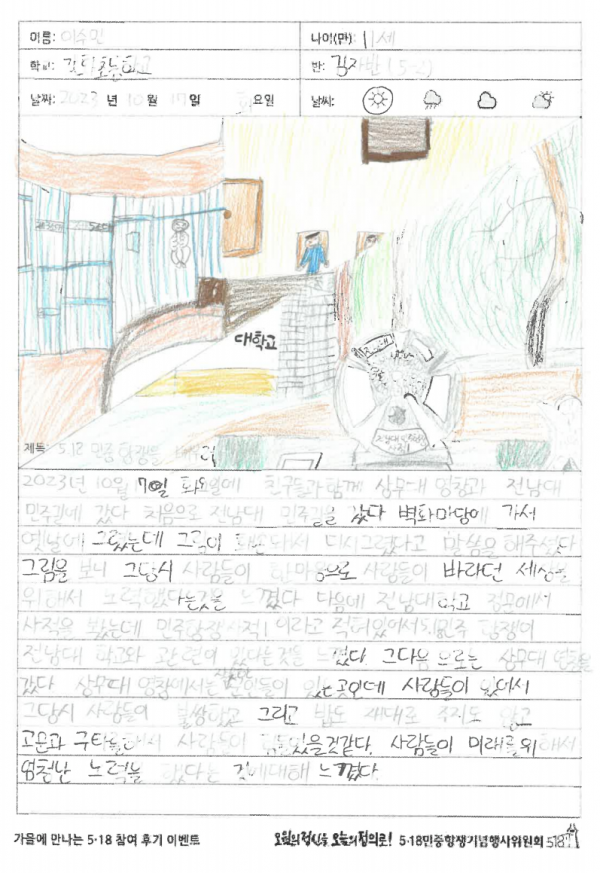 이름: 이수민
나이(만): 11세
학교: 초등학교
반: (5-2)
날짜: 2023 년 10 월 17 일 화 요일
날씨:
대학교
제목: 5.18 민중항쟁을
2023년 10월 17일 화요일에 친구들과 함께 상무대 영창과 전남대
민주길에 갔다 처음으로 전남대 민주길을 갔다 벽화마당에 가서
옛날에 그렸는데 그림이 해서 다시그렸다고 말씀을 해주셨다
그림을 보니 그당시 사람들이 한마음으로 사람들이 바라던 세상을
위해서 노력했다는것을 느꼈다 다음에 전남대학교 정문에서
사적을 봤는데 민주항쟁사적1 이라고 적혀있어서 5.18민주 항쟁이
전남대 학교와 관련이 있다는것을 느꼈다 그다음으로는 상무대 영창을
갔다 상무대 영창에서는 있는곳인데 사람들이 있어서
그당시 사람들이 불쌍하고 그리고 밥도 제대로 주지도 않고
고문과 구타를해서 사람들이 힘들었을것같다. 사람들이 미래를위해서
엄청난 노력을 했다는 것에대해 느꼈다.
가을에 만나는 5·18 참여 후기 이벤트
오월의 정신을 오늘의 정의로! 5·18민중항쟁기념행사위원회 518